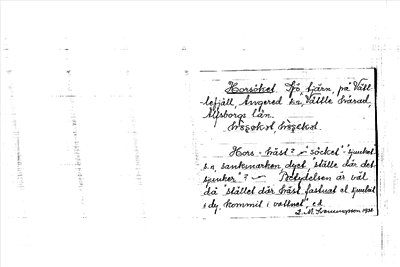 Horsöket. Sjö, tjärn, på Vätt-
lefjäll, Angered sn, Vättle härad,
Älfsborgs län.
Hors = häst? – "söcket" = sjunket
s.n. sankmarken dyet "ställe där det
sjunker"? – Betydelsen är väl
då "stället där häst fastnat el sjunket
i dy, kommit i vattnet" e.d.
1921